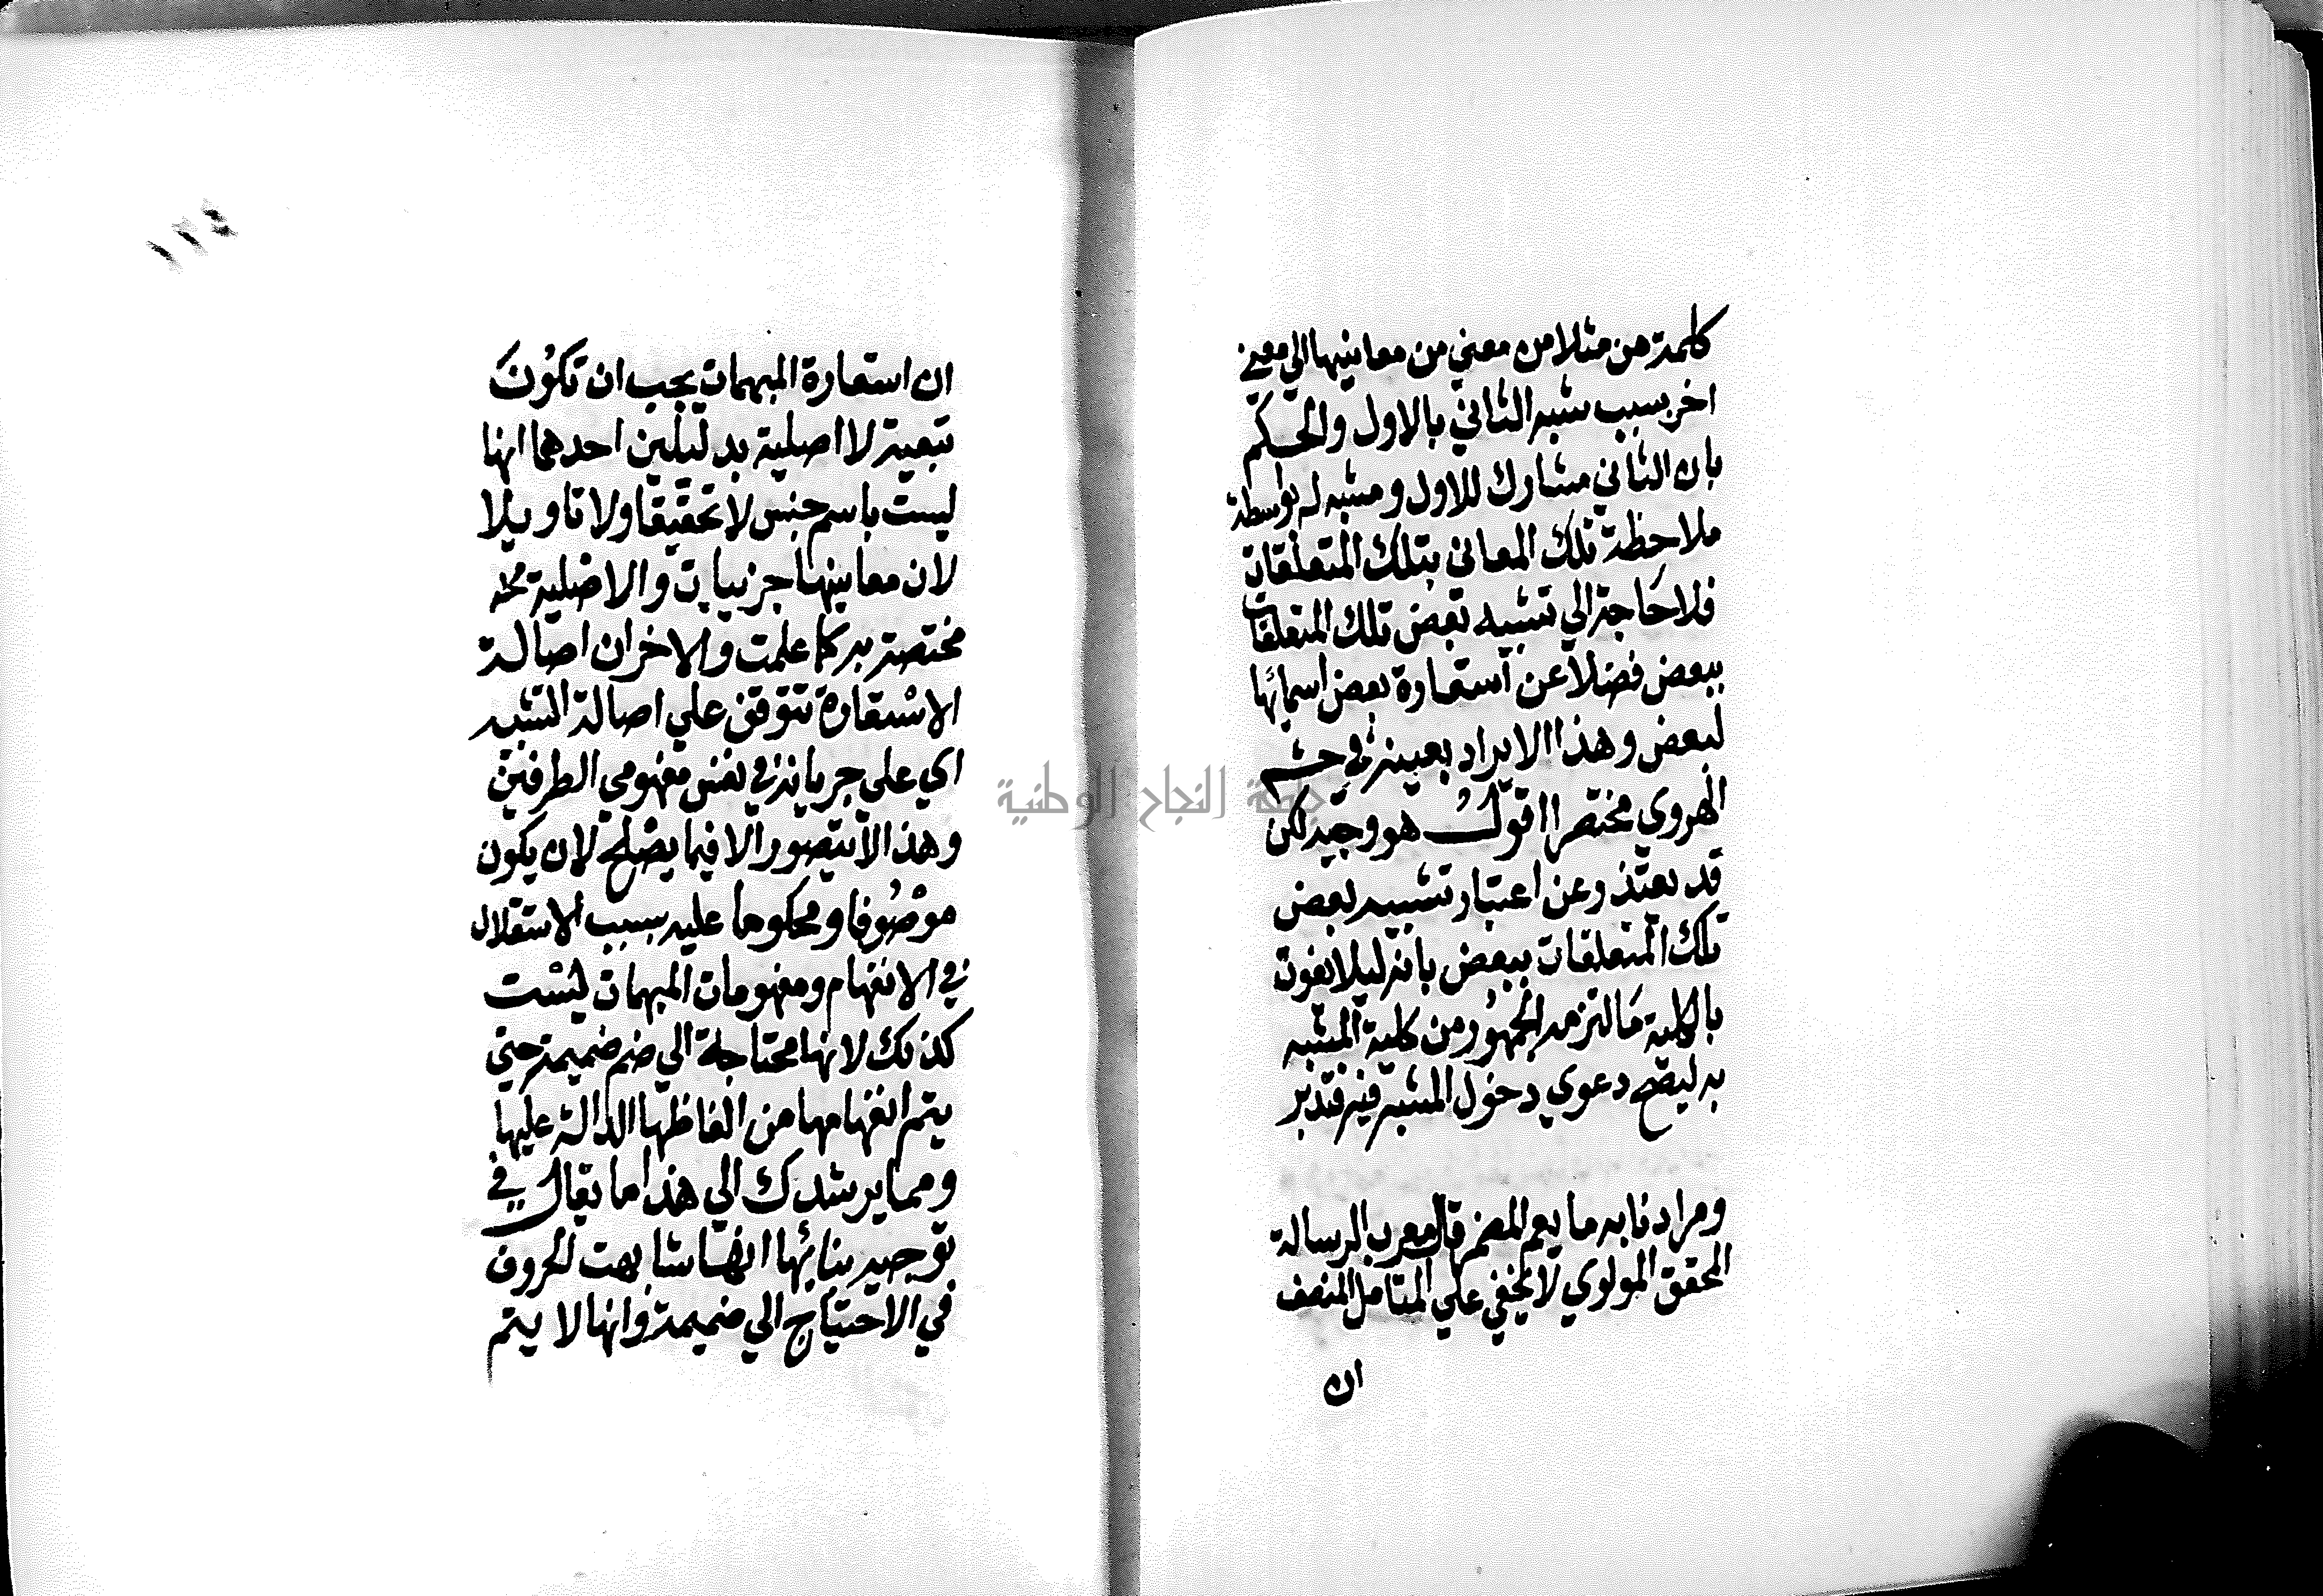 كلمة من مثلا من معني من معانيها الي معني
اخر بسبب شبه الثاني بالاول والحكم
بان الثاني مشارك للاول ومشبه له بواسطة
ملاحظة تلك المعاني بتلك المتعلقات
فلا حاجة الي تشبيه بعض تلك المتعلقات
ببعض فضلا عن استعارة بعض اسمائها
لبعض وهذا الايراد بعينه في
الهروي مختصرا اقول هو وجيه لكن
قد يعتذر عن اعتبار تشبيه بعض
تلك المتعلقات ببعض بانه ليلا يفوت
بالكلية ما التزمه الجمهور من كلية المشبه
به ليصح دعوي دخول المشبه فيه فتدبر
ومرادنا به ما يعم المضمر قال معرب الرسالة
المحقق المولوي لا يخفي علي المتامل المنصف
ان
١٢٤
ان استعارة المبهمات يجب ان تكون
تبعية لا اصلية بدليلين احدهما انها
ليست باسم جنس لا تحقيقا ولا تاويلا
لان معانيها جزييات والاصلية
مختصة به كما علمت والاخر ان اصالة
الاستعارة تتوقف علي اصالة التشبيه
اي علي جريانه في نفس مفهومي الطرفين
وهذا لا يتصور الا فيما يصلح لان يكون
موصوفا ومحكوما عليه بسبب الاستقلال
في الانفهام ومفهومات المبهمات ليست
كذلك لانها محتاجة الي ضم ضميمة حتي
يتم انفهامها من الفاظها الدالة عليها
ومما يرشدك الي هذا ما يقال في
توجيه بنائها انها شابهت الحروف
في الاحتياج الي ضميمة وانها لا يتم
جامعة النجاح الوطنية